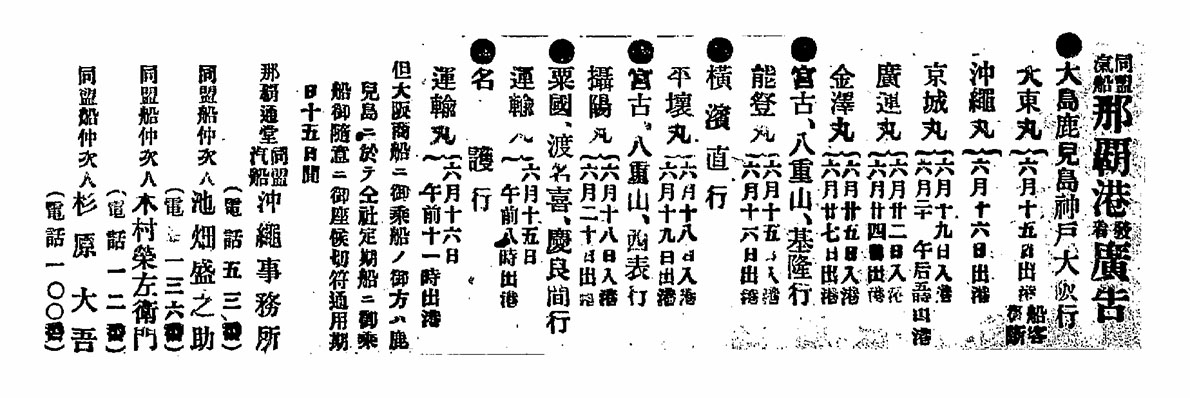 同盟汽船那覇港發着廣告
●大島鹿兒島神戸大阪行
大東丸 六月十五日出港 船客御斷
沖繩丸 六月十六日出港
京城丸 六月十九日入港 六月二十 午后五時出港
廣運丸 六月廿二日入港 六月廿四日出港
金澤丸 六月廿五日入港 六月廿七日出港
●宮古、八重山、基隆行
能登丸 六月十五日入港 六月十六日出港
●橫濱直行
平壤丸 六月十八日入港 六月十九日出港
●宮古、八重山、西表行
攝陽丸 六月十八日入港 六月二十日出港
●粟國、渡名喜、慶良間行
運輸丸 六月十五日 午前八時出港
●名護行
運輸丸 六月十六日 午前十一時出港
但大阪商船ニ御乘船ノ御方ハ鹿
兒島ニ於テ仝社定期船ニ御乘
船御隨意ニ御座候切符通用期
日十五日間
那覇通堂 同盟汽船 沖繩事務所
(電話五三番)
同盟船仲次人 池畑盛之助
(電話一三六番)
同盟船仲次人 木村榮左衛門
(電話一二番)
同盟船仲次人 杉原大吾
(電話一〇〇番)